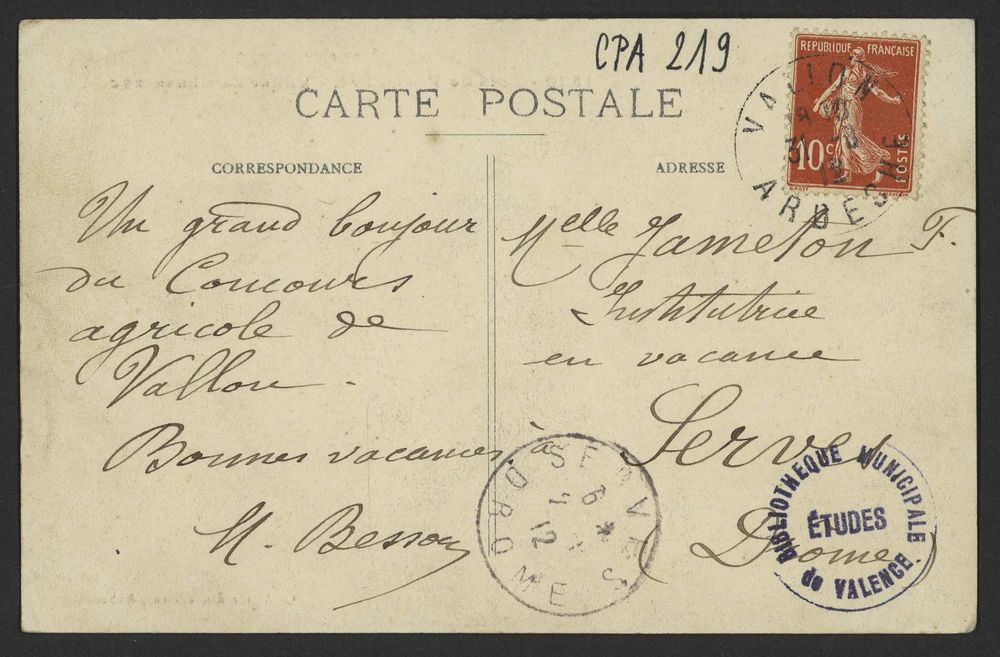 CPA 219
CARTE POSTALE
REPUBLIQUE FRANÇAISE
10c
POSTES
VALLON
ARDECHE
CORRESPONDANCE
ADRESSE
Un grand bonjour
du Concours
agricole de
Vallon.
Bonnes vacances.
M. Besson
Melle Jameton F.
Institutrice
en vacance
à Serves
(Drôme)
SERVES
DROME
12
BIBLIOTHEQUE MUNICIPALE
ÉTUDES
de VALENCE